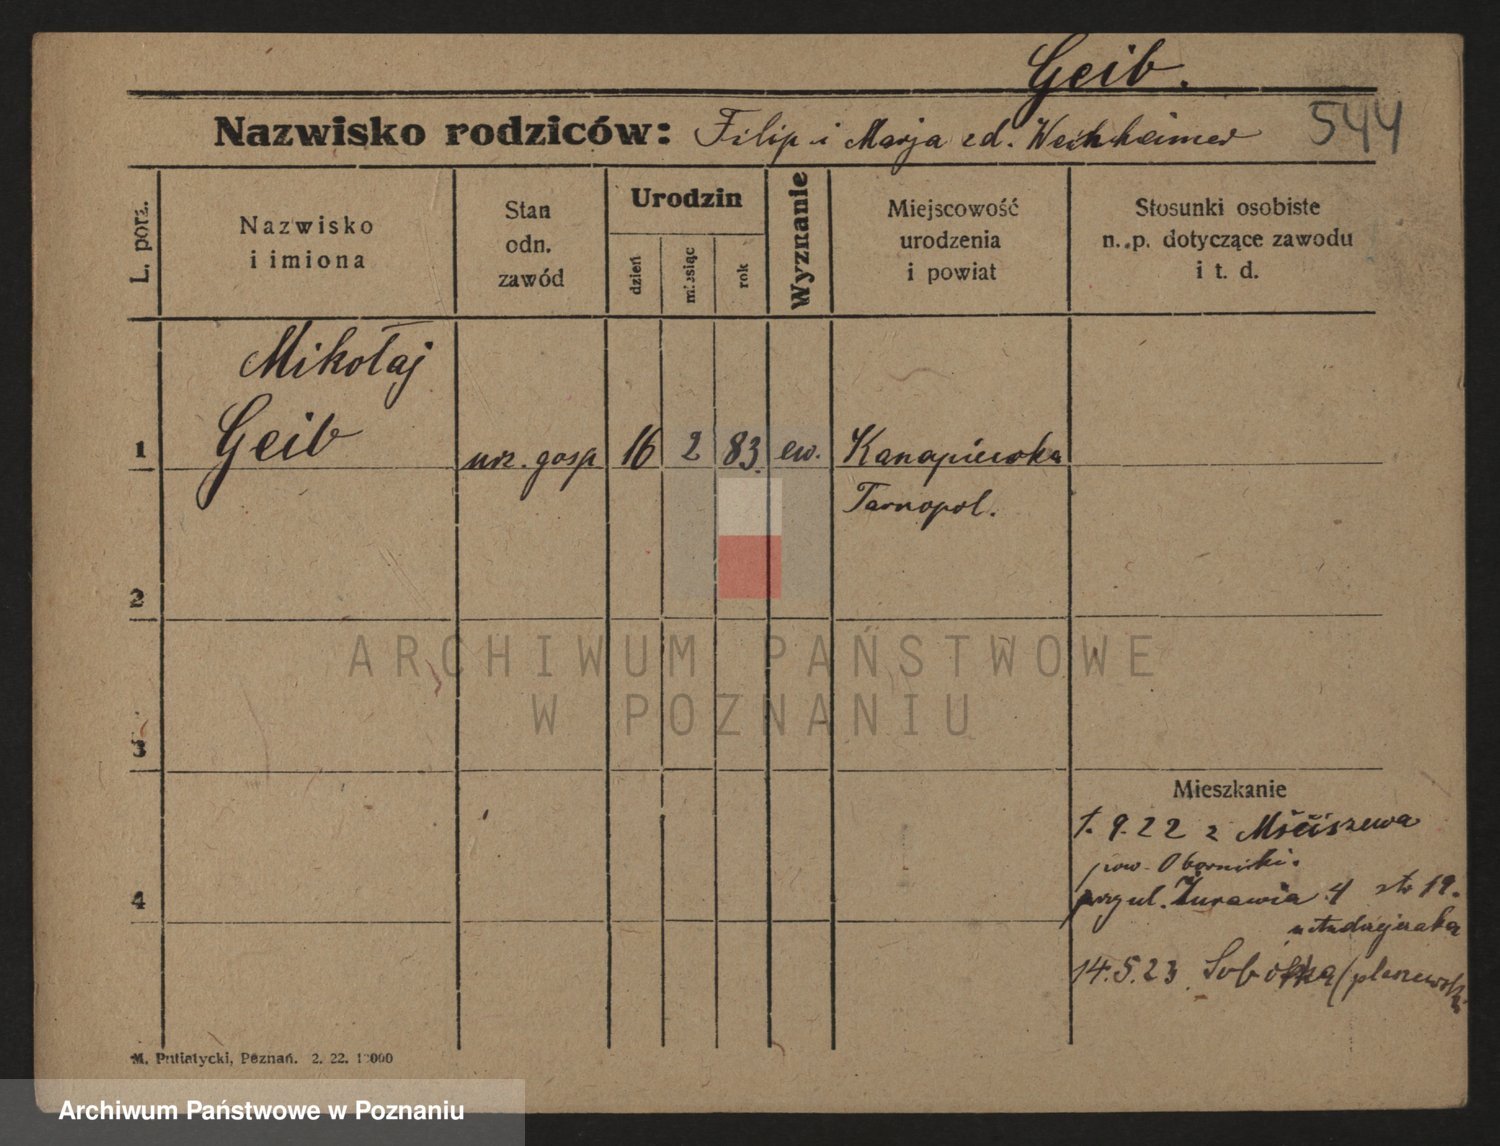 Geib.
Nazwisko rodziców: Filip i Marja zd. Weinheimer
544
L. porz.
Nazwisko
i imiona
Stan
odn.
zawód
Urodzin
dzień
miesiąc
rok
Wyznanie
Miejscowość
urodzenia
i powiat
Stosunki osobiste
n. p. dotyczące zawodu
i t. d.
Mikołaj
1 Geib urz. gosp 16 2 83. ew. Kanapiewka
Tarnopol.
2
ARCHIWUM PAŃSTWOWE
W POZNANIU
3
Mieszkanie
1. 9. 22 z Mściszewa
pow. Obornicki.
4
przy ul. Żurawia 4 str 19.
u Andrzejczaka
14. 5. 23. Sobótka (pleszewski
M. Putiatycki, Poznań. 2. 22. 10000
Archiwum Państwowe w Poznaniu